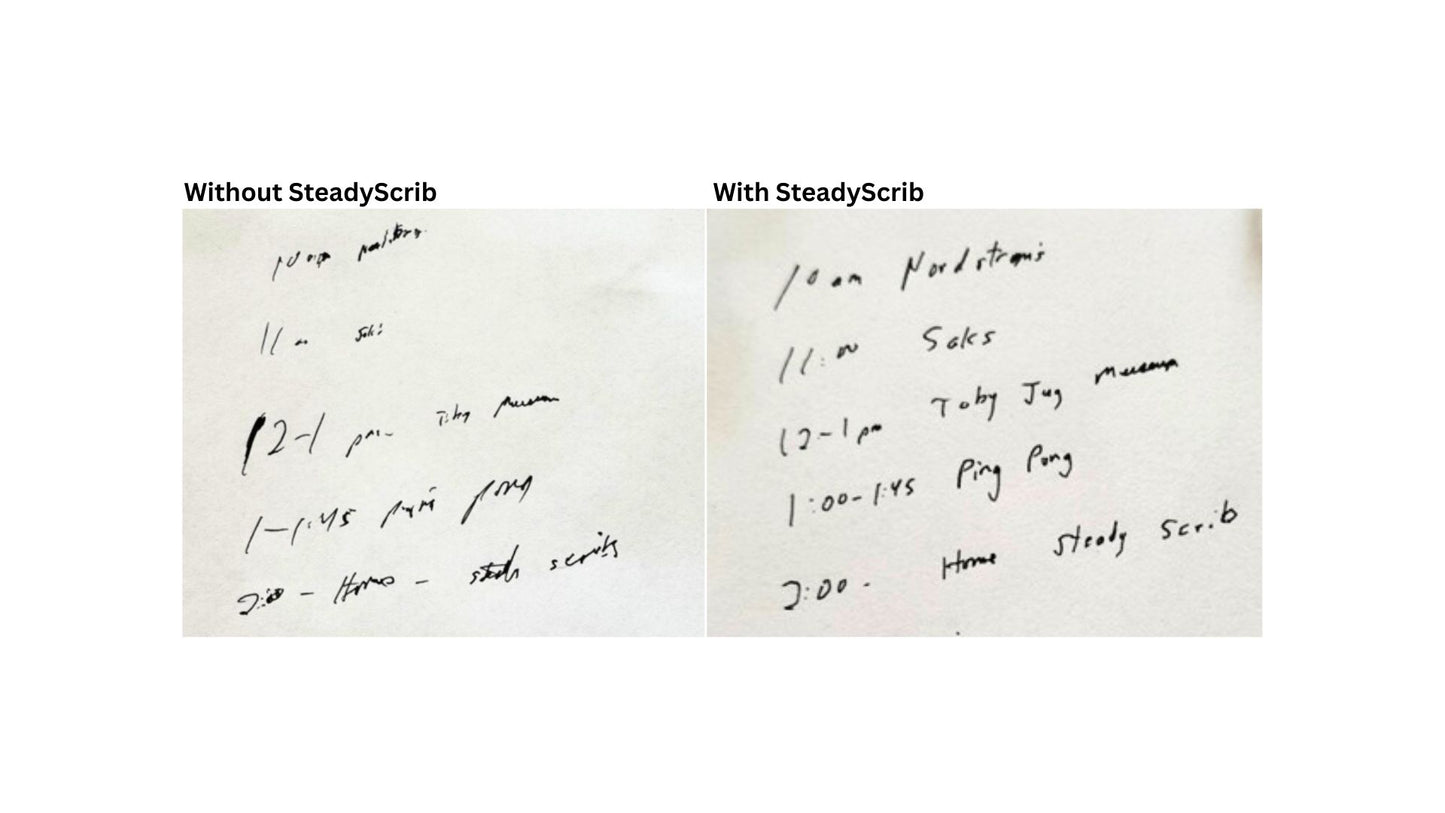 Without SteadyScrib
10 am
11 am Saks
12-1 pm Toby Museum
1-1:45 ping pong
2:00 - Home - steady scribs
With SteadyScrib
10 am Nordstrom's
11:00 Saks
12-1 pm Toby Jug Museum
1:00-1:45 Ping Pong
2:00 - Home Steady Scrib